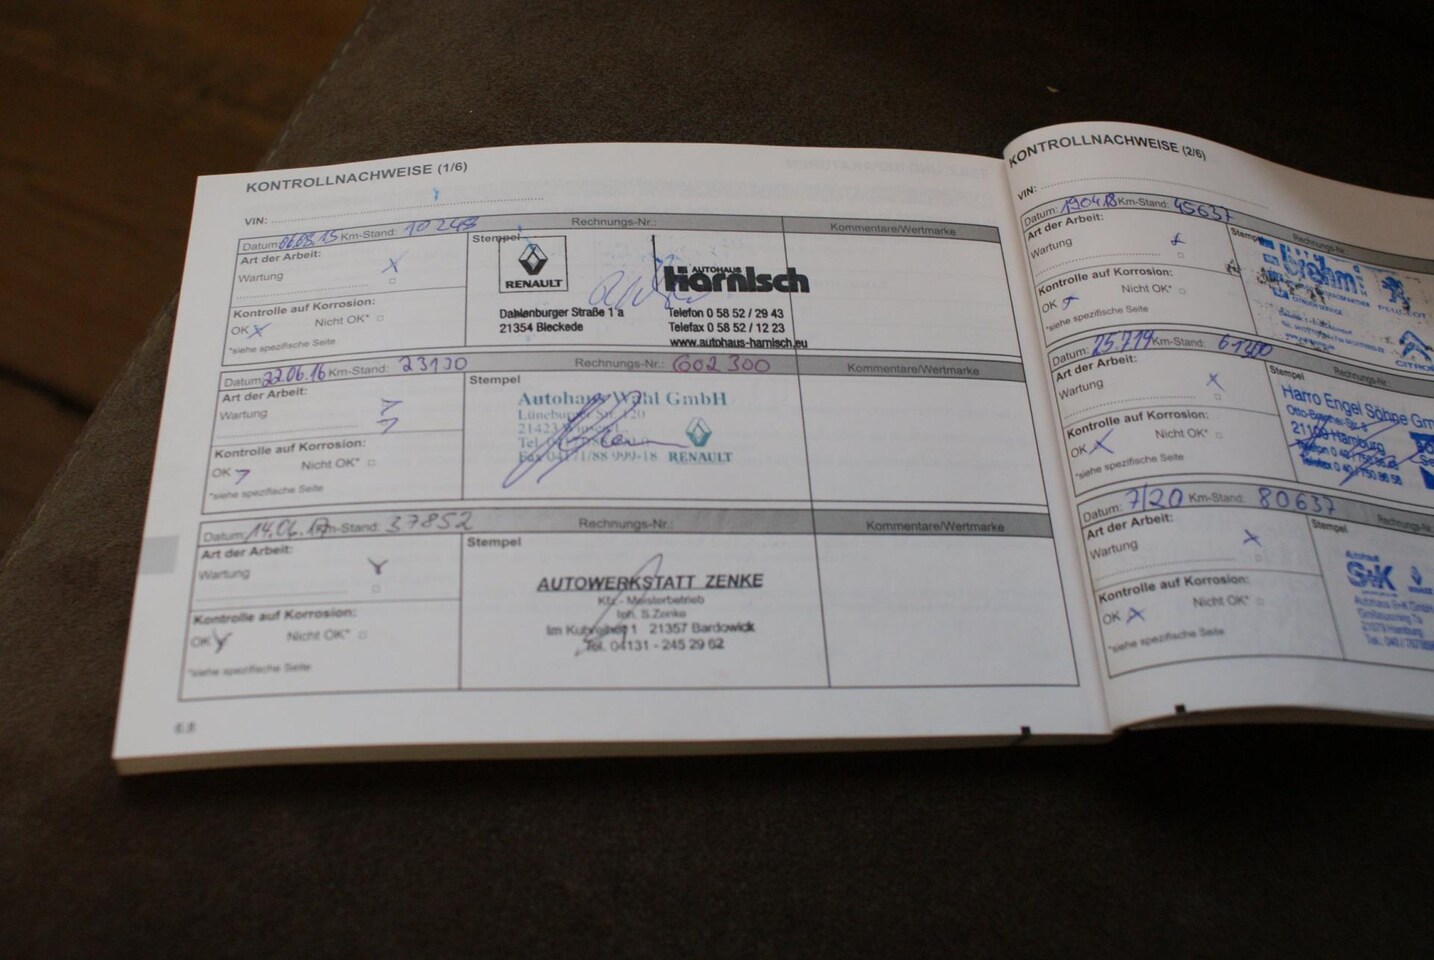 KONTROLLNACHWEISE (1/6)
VIN:
Datum: 06.08.15 Km-Stand: 10248 Rechnungs-Nr.: Kommentare/Wertmarke
Art der Arbeit:
Wartung X
Kontrolle auf Korrosion:
OK X Nicht OK*
*siehe spezifische Seite
Stempel
RENAULT
AUTOHAUS
Harnisch
Dahlenburger Straße 1 a
21354 Bleckede
Telefon 0 58 52 / 29 43
Telefax 0 58 52 / 12 23
www.autohaus-harnisch.eu
Datum: 22.06.16 Km-Stand: 23130 Rechnungs-Nr.: 602300 Kommentare/Wertmarke
Art der Arbeit:
Wartung
Kontrolle auf Korrosion:
OK Nicht OK*
*siehe spezifische Seite
Stempel
Autohaus Wahl GmbH
Lüneburger Str. 120
21423
Tel.
Fax 04171/88 999-18 RENAULT
Datum: 14.06.17 Km-Stand: 37852 Rechnungs-Nr.: Kommentare/Wertmarke
Art der Arbeit:
Wartung
Kontrolle auf Korrosion:
OK Nicht OK*
*siehe spezifische Seite
Stempel
AUTOWERKSTATT ZENKE
Kfz - Meisterbetrieb
Inh. S.Zenke
Im Kuhreiher 1 21357 Bardowick
Tel. 04131 - 245 29 62
6.8
KONTROLLNACHWEISE (2/6)
VIN:
Datum: 19.04.18 Km-Stand: 45637 Rechnungs-Nr.
Art der Arbeit:
Wartung
Kontrolle auf Korrosion:
OK Nicht OK*
*siehe spezifische Seite
Stempel
PEUGEOT
CITROË
Datum: 25.7.19 Km-Stand: 61400 Rechnungs-Nr.
Art der Arbeit:
Wartung X
Kontrolle auf Korrosion:
OK X Nicht OK*
*siehe spezifische Seite
Stempel
Harro Engel Söhne Gm
21109 Hamburg
Datum: 7/20 Km-Stand: 80637 Rechnungs-Nr.
Art der Arbeit:
Wartung X
Kontrolle auf Korrosion:
OK X Nicht OK*
*siehe spezifische Seite
Stempel
Autohaus
S+K
Autohaus S+K GmbH
21079 Hamburg